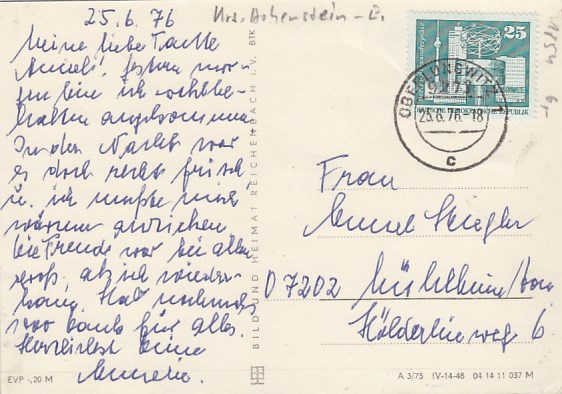 25.6.76
Krs. Hohenstein-E.
Meine liebe Tante
gestern
bin ich wohlbe-
halten angekommen.
In der Nacht war
es doch recht frisch
u. ich mußte mich
wärmer anziehen
die Freude war bei allen
groß, als ich wieder-
kam. Hab nochmals
Dank für alles.
Herzlichst Deine
EVP -,20 M
BILD UND HEIMAT REICHENBACH I. V. BTK
25
DEUTSCHE DEMOKRATISCHE REPUBLIK
OBERLUNGWITZ 1
9273
25.6.76-18
c
Frau
D 7202 Mühlheim/Don
Hölderlinweg 6
A 3/75 IV-14-48 04 14 11 037 M